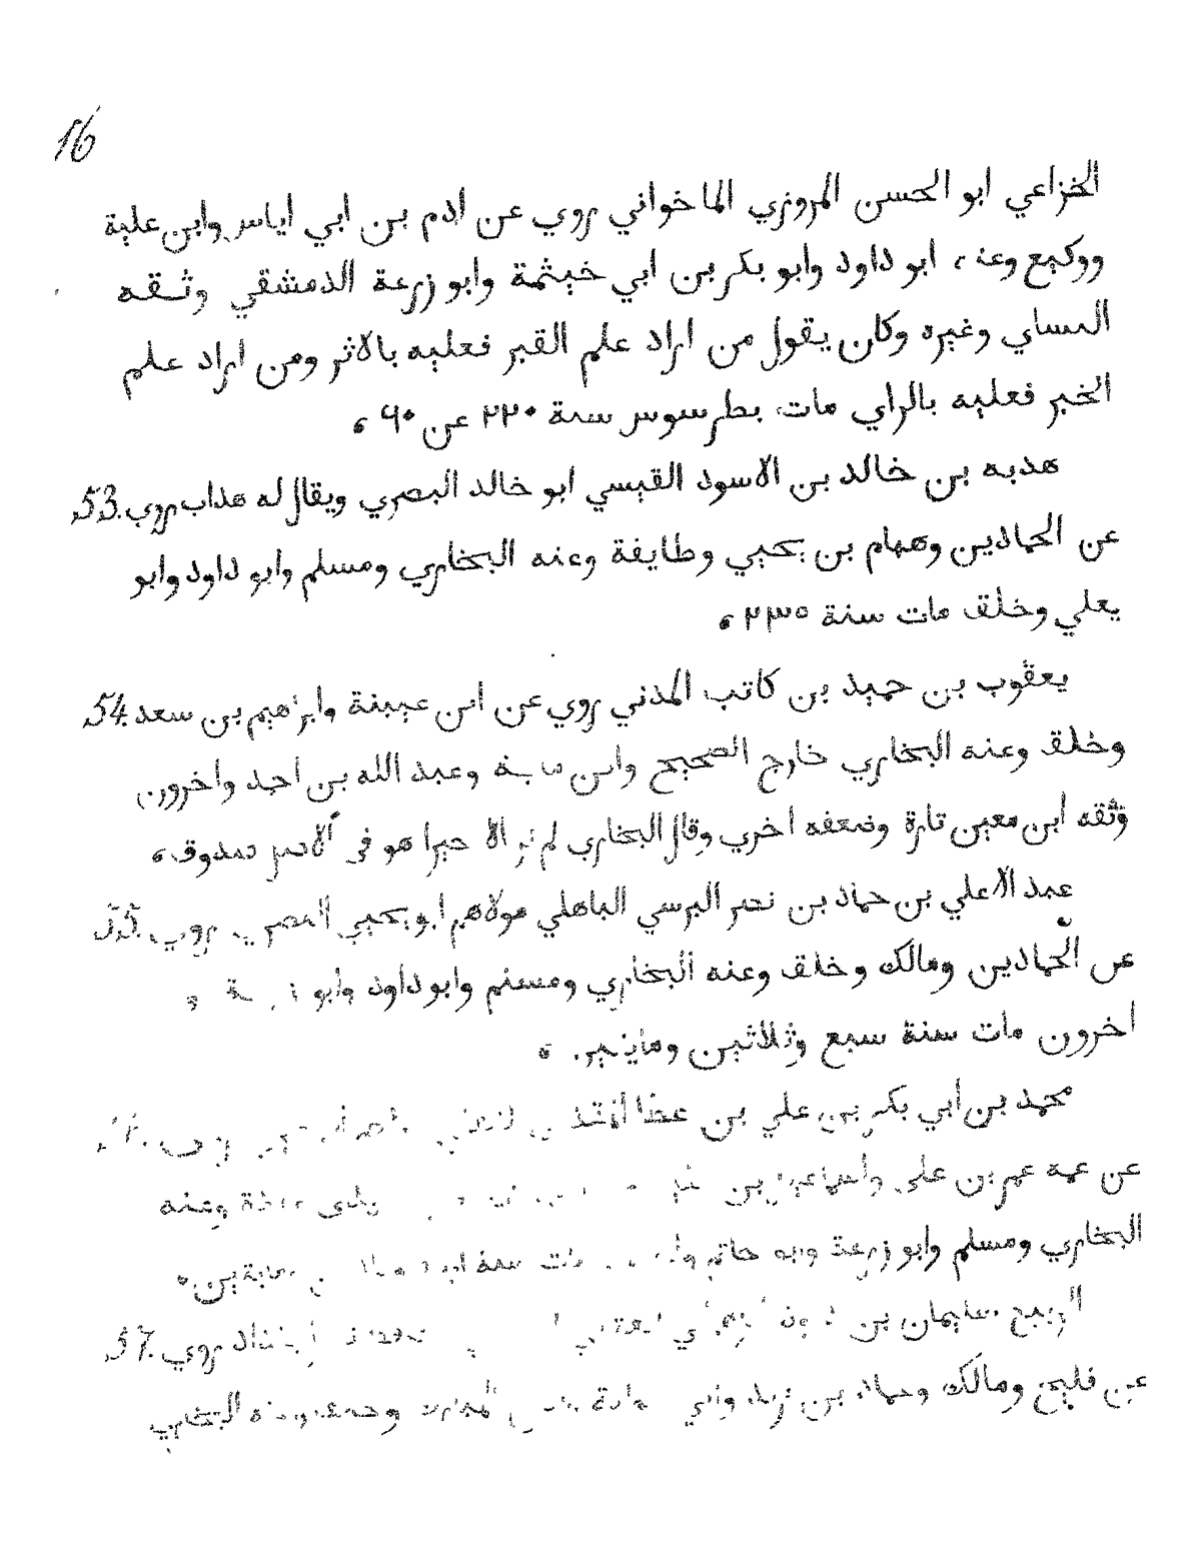 16
الخزاعي ابو الحسن المروزي الماخواني روي عن ادم بن ابي اياس وابن علية
ووكيع وعنه ابو داود وابو بكر بن ابي خيثمة وابو زرعة الدمشقي وثقه
النساي وغيره وكان يقول من اراد علم القبر فعليه بالاثر ومن اراد علم
الخبر فعليه بالراي مات بطرسوس سنة ٢٣٠ عن ٦٠ ه
53. هدبه بن خالد بن الاسود القيسي ابو خالد البصري ويقال له هداب روي
عن الحمادين وهمام بن يحيي وطايفة وعنه البخاري ومسلم وابو داود وابو
يعلي وخلق مات سنة ٢٣٥ ه
54. يعقوب بن حميد بن كاتب المدني روي عن ابن عيينة وابراهيم بن سعد
وخلق وعنه البخاري خارج الصحيح وابن ماجة وعبد الله بن احمد واخرون
وثقه ابن معين تارة وضعفه اخري وقال البخاري لم نر الا خيرا هو في الاصل صدوق ه
55. عبد الاعلي بن حماد بن نصر البرسي الباهلي مولاهم ابو يحيي البصري روي
عن الحمادين ومالك وخلق وعنه البخاري ومسلم وابو داود وابو زرعة و
اخرون مات سنة سبع وثلاثين وماتين ه
محمد بن ابي بكر بن علي بن عطا المقدمي
عن عمه عمر بن علي واسماعيل بن وعنه
البخاري ومسلم وابو زرعة وابو حاتم مات سنة ه
57. الربيع سليمان بن داود روي
عن فليح ومالك وحماد بن زيد وابي البخاري